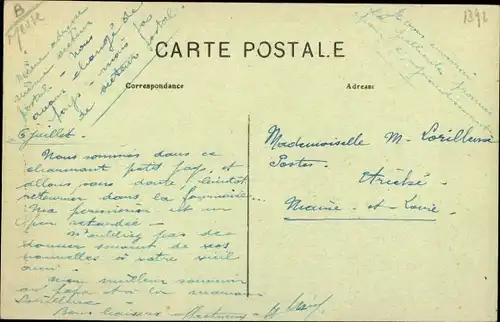 B
1392
Même adresse
même secteur
postal - nous
avons changé de
pays - mais pas
de secteur postal.
CARTE POSTALE
Correspondance
Adresse
6 juillet.
Nous sommes dans ce
charmant petit pays, et
allons sans doute bientôt
retourner dans la fournaise...
Ma permission est un
peu retardée -
N'oubliez pas de
donner souvent de vos
nouvelles à votre vieil
ami.
Mon meilleur souvenir
au papa et à la maman
Lorilleux -
Bons baisers -
Mademoiselle M. Lorilleux
Postes.
Maine-et-Loire.